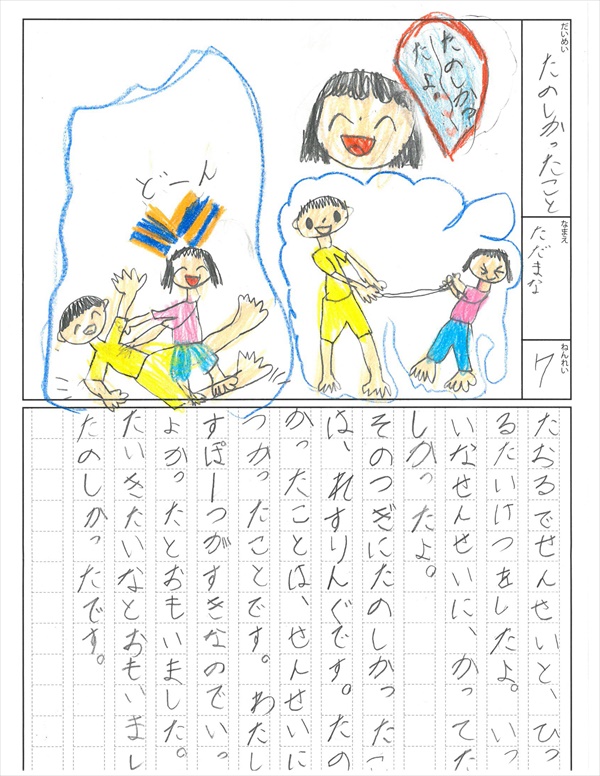 だいめい
たのしかったこと
なまえ
ただまな
ねんれい
7
たのしかっ
たよ。
どーん
たおるでせんせいと、ひっ
るたいけつをしたよ。いっ
いなせんせいに、かってた
しかったよ。
そのつぎにたのしかったこ
は、れすりんぐです。たの
かったことは、せんせいに
つかったことです。わたし
すぽーつがすきなのでいっ
ょかったとおもいました。
たいきたいなとおもいまし
たのしかったです。